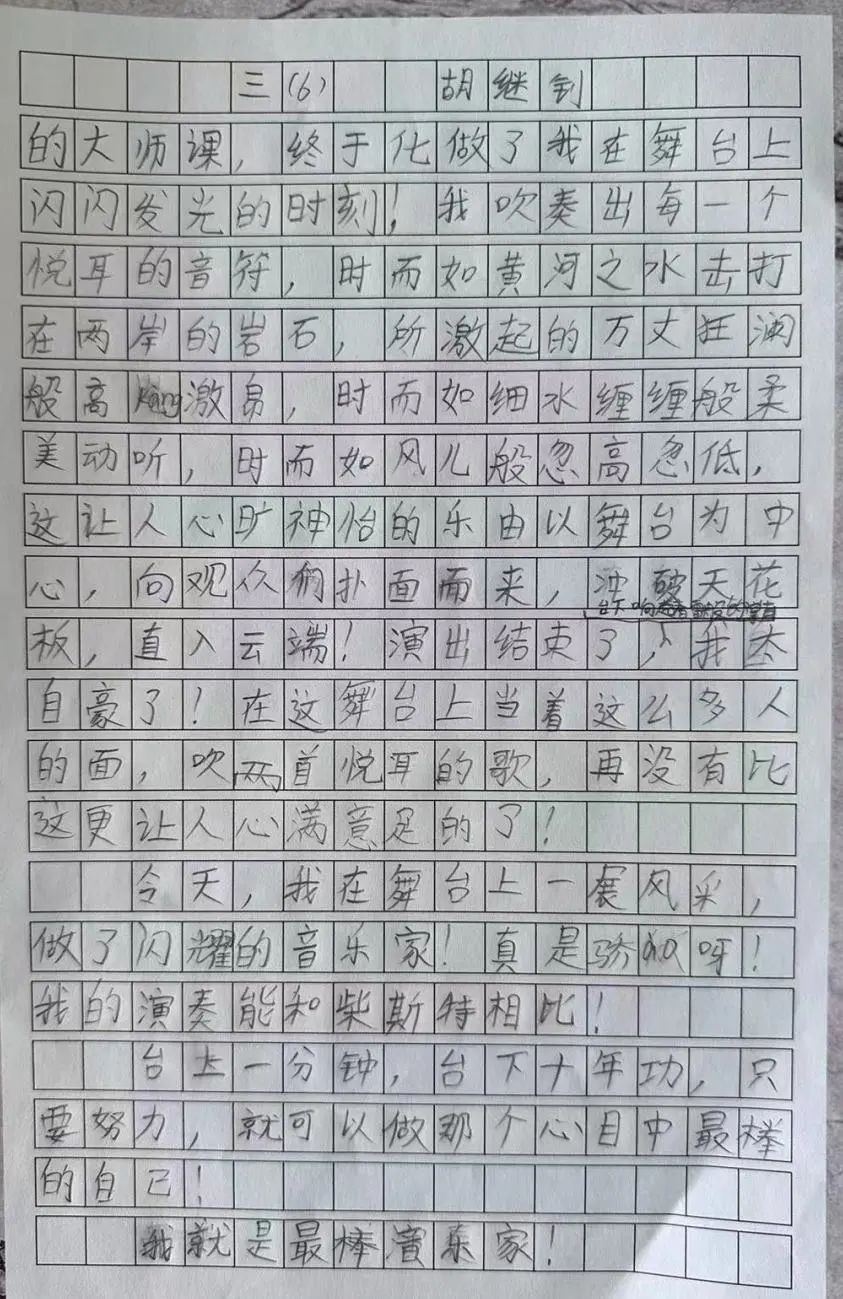 三(6) 胡继钊
的大师课，终于化做了我在舞台上
闪闪发光的时刻！我吹奏出每一个
悦耳的音符，时而如黄河之水击打
在两岸的岩石，所激起的万丈狂澜
般高kàng激昂，时而如细水缠缠般柔
美动听，时而如风儿般忽高忽低，
这让人心旷神怡的乐由以舞台为中
心，向观众们扑面而来，冲破天花
台下响起着
板，直入云端！演出结束了，我太
自豪了！在这舞台上当着这么多人
的面，吹两首悦耳的歌，再没有比
这更让人心满意足的了！
今天，我在舞台上一展风采，
做了闪耀的音乐家！真是骄呀！
我的演奏能和柴斯特相比！
台上一分钟，台下十年功，只
要努力，就可以做那个心目中最棒
的自己！
我就是最棒音乐家！